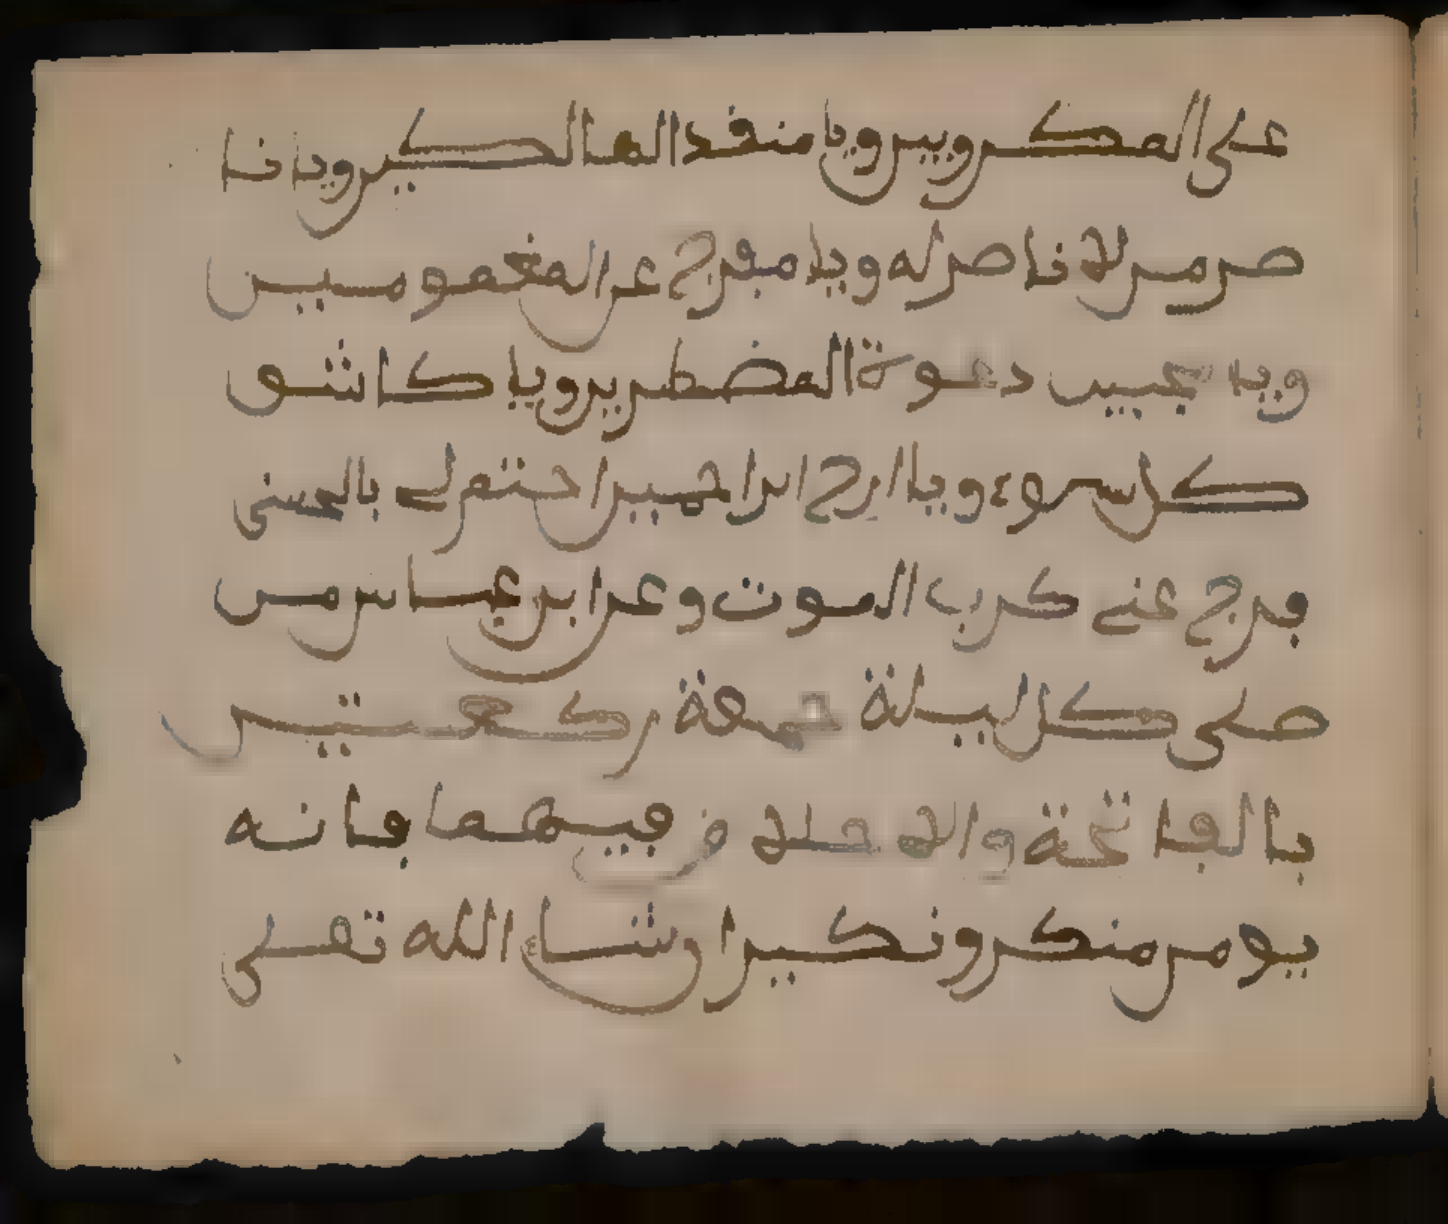 على المكروبين ويا منقد الهالكين ويا نا
صر من لا ناصر له ويا مفرج عن المغمومين
ويا مجيب دعوة المضطرين ويا كاشف
كل سوء ويا ارح الراحمين اختم لي بالحسنى
فرج عني كرب الموت وعن ابن عباس من
صلى كل ليلة جمعة ركعتين
بالفاتحة والاخلاص فيهما فانه
يومن منكر ونكير ان شاء الله تعلى